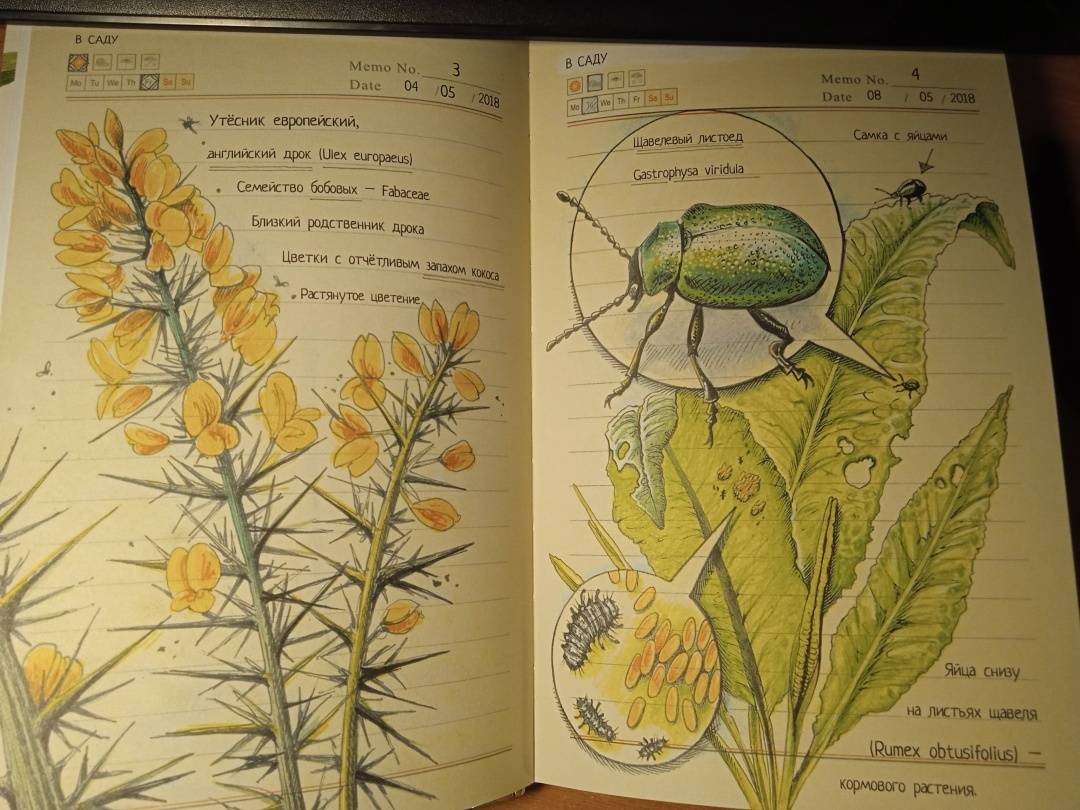 В САДУ
Memo No. 3
Mo Tu We Th Sa Su
Date 04 / 05 / 2018
Утёсник европейский,
английский дрок (Ulex europaeus)
Семейство бобовых — Fabaceae
Близкий родственник дрока
Цветки с отчётливым запахом кокоса
Растянутое цветение
В САДУ
Memo No. 4
Mo We Th Fr Sa Su
Date 08 / 05 / 2018
Щавелевый листоед
Gastrophysa viridula
Самка с яйцами
Яйца снизу
на листьях щавеля
(Rumex obtusifolius) —
кормового растения.